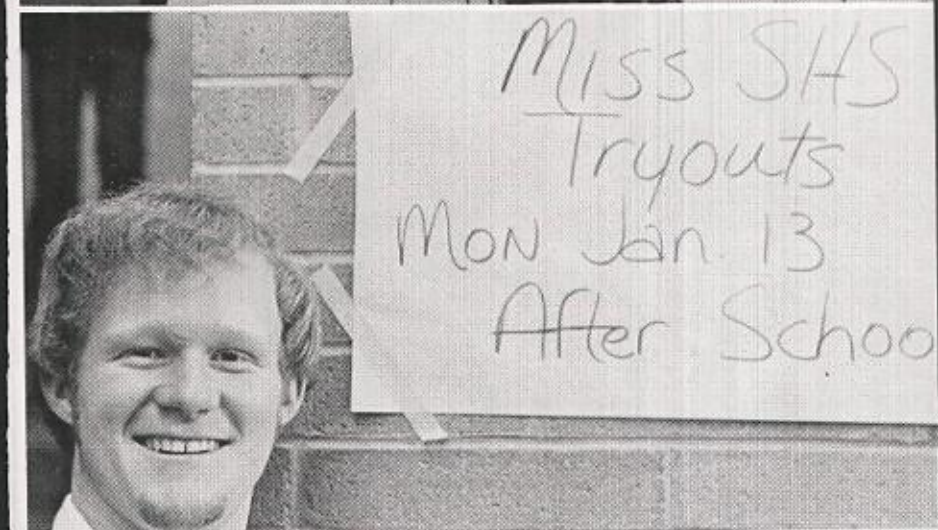 Miss SHS
Tryouts
Mon Jan. 13
After Schoo